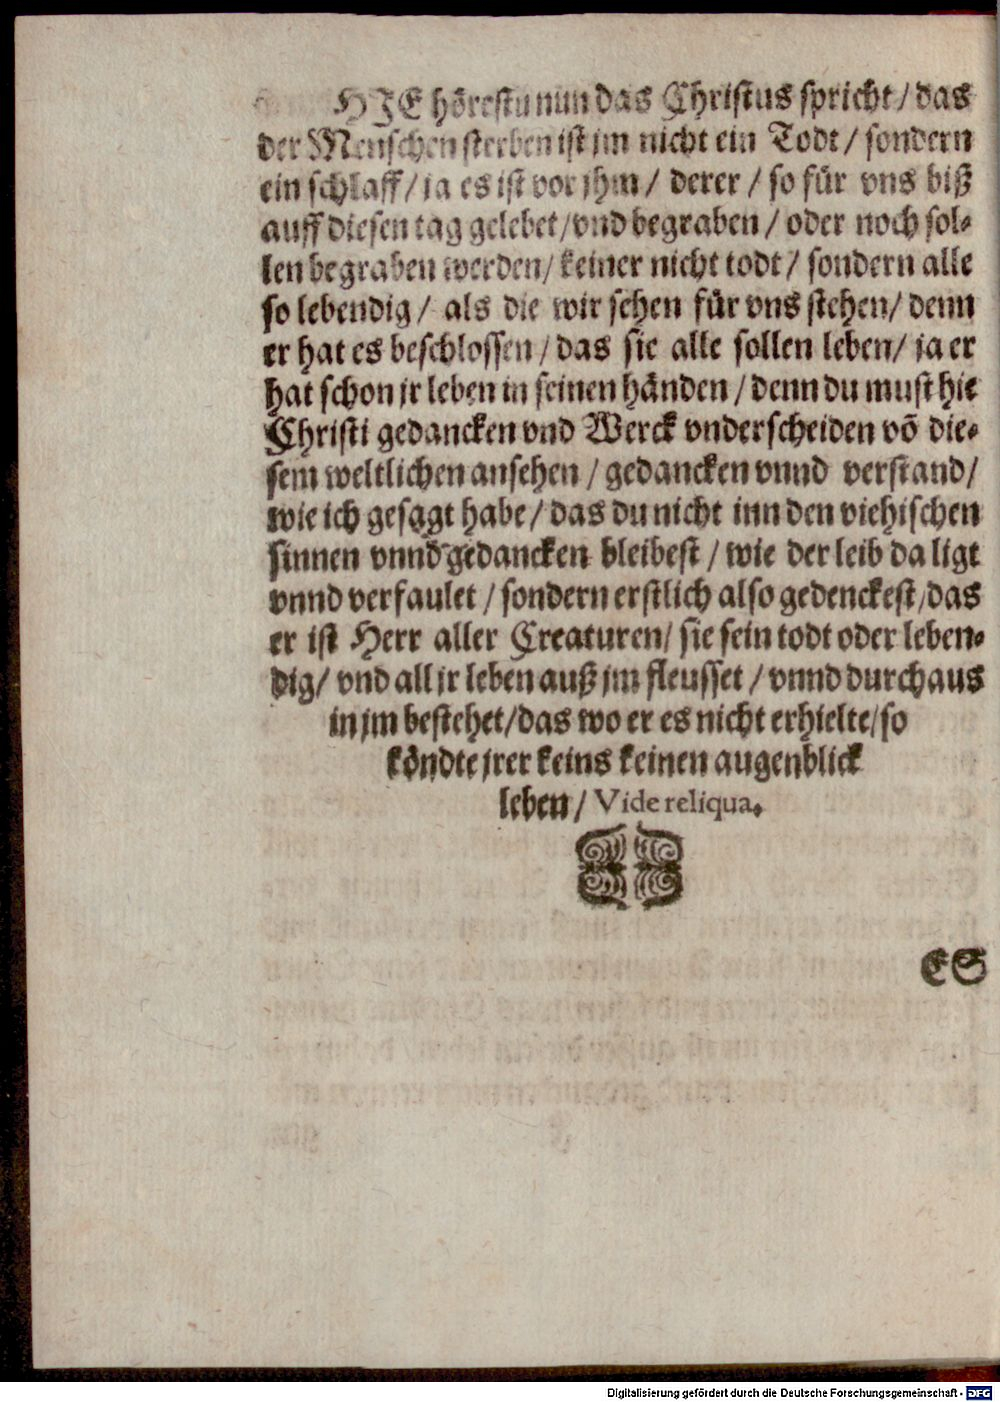 HJE hörestu nun das Christus spricht / das
der Menschen sterben ist jm nicht ein Todt / sondern
ein schlaff / ja es ist vor jhm / derer / so für vns biß
auff diesen tag gelebet / vnd begraben / oder noch sol-
len begraben werden / keiner nicht todt / sondern alle
so lebendig / als die wir sehen für vns stehen / denn
er hat es beschlossen / das sie alle sollen leben / ja er
hat schon jr leben in seinen händen / denn du must hie
Christi gedancken vnd Werck vnderscheiden võ die-
sem weltlichen ansehen / gedancken vnnd verstand /
wie ich gesagt habe / das du nicht inn den viehischen
sinnen vnnd gedancken bleibest / wie der leib da ligt
vnnd verfaulet / sondern erstlich also gedenckest / das
er ist Herr aller Creaturen / sie sein todt oder leben-
dig / vnd all jr leben auß jm fleusset / vnnd durchaus
in jm bestehet / das wo er es nicht erhielte / so
köndte jrer keins keinen augenblick
leben / Vide reliqua.
ES
Digitalisierung gefördert durch die Deutsche Forschungsgemeinschaft - DFG